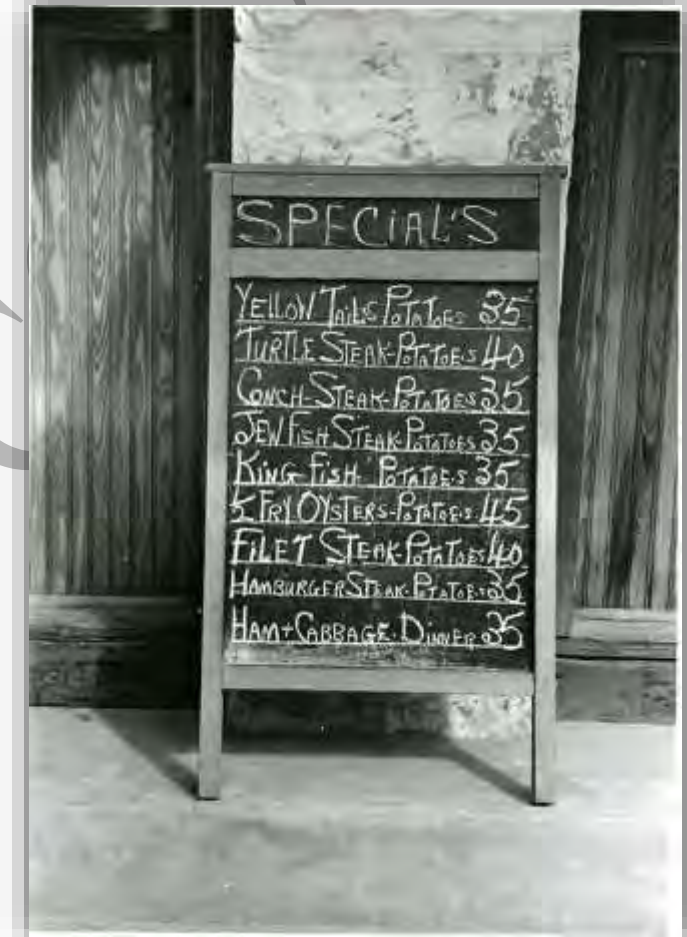 SPECiAL'S
YELLOW TAILS POTATOES 35
TURTLE STEAK-POTATOES 40
CONCH-STEAK-POTATOES 35
JEW FISH STEAK-POTATOES 35
KING FISH POTATOES 35
FRY OYSTERS-POTATOES 45
FiLET STEAK-POTATOES 40
HAMBURGER STEAK-POTATOES 35
HAM+CABBAGE-DINNER 35